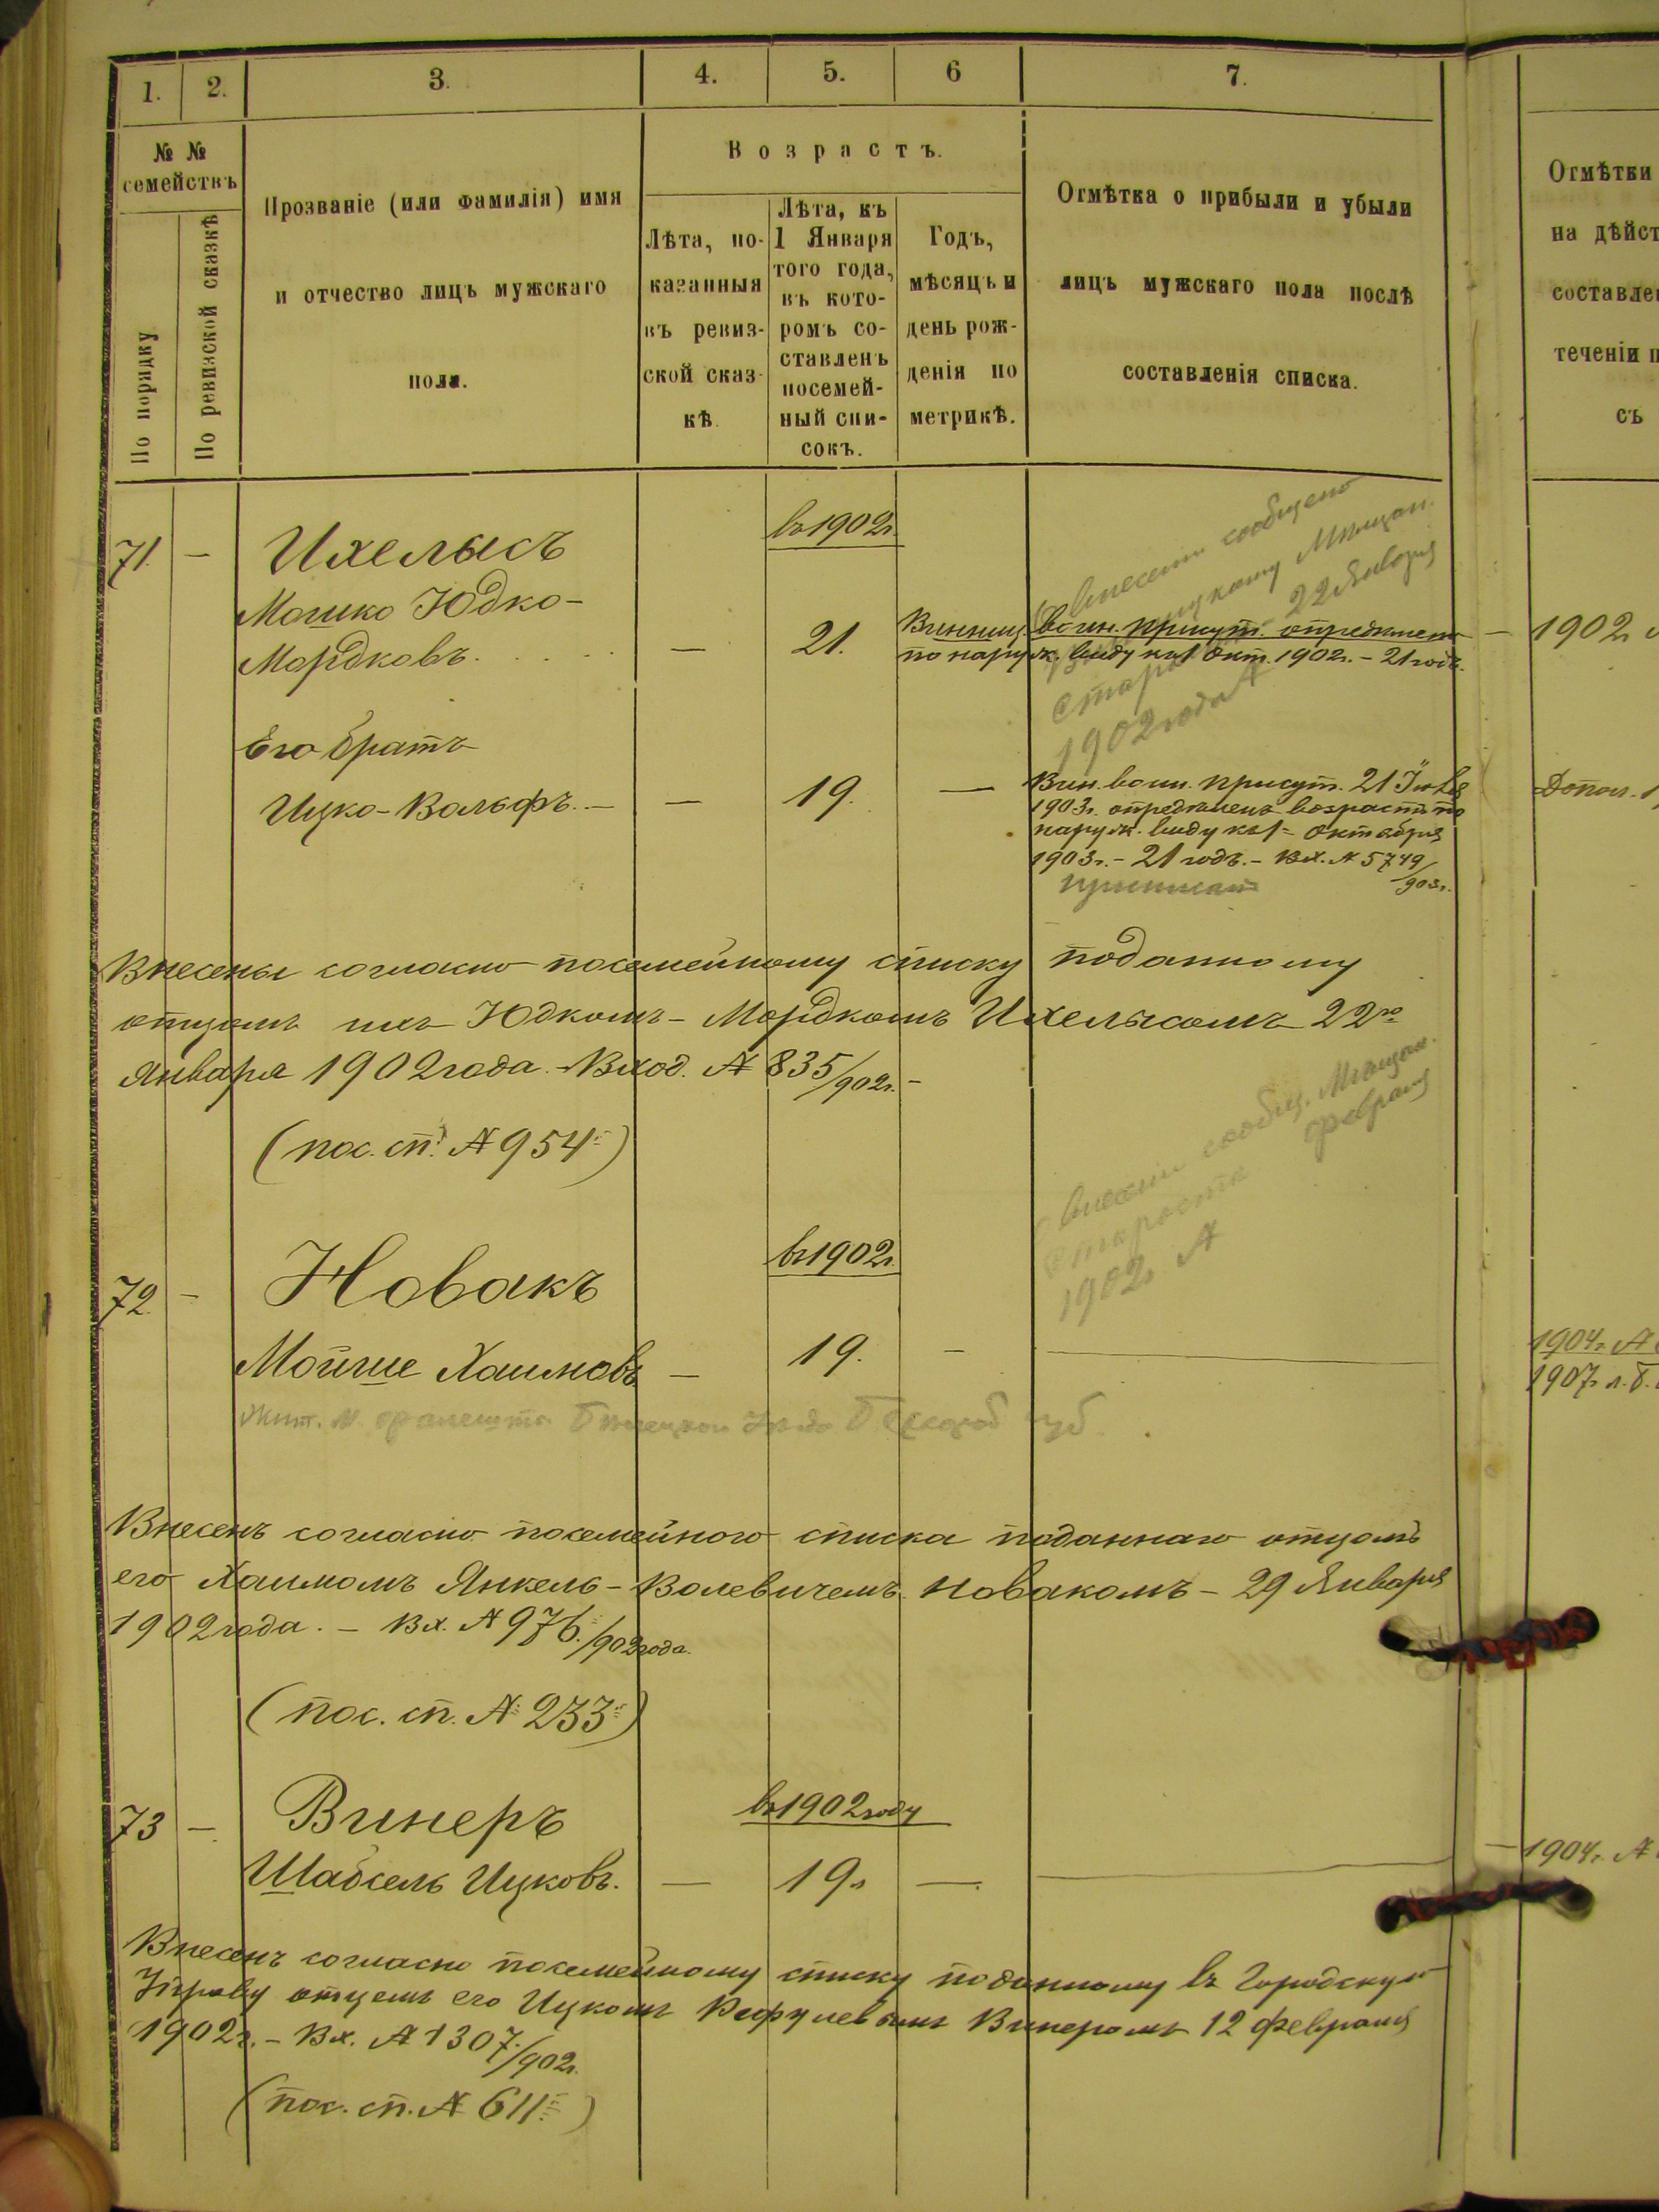 1. 2. 3. 4. 5. 6 7.
№ № семействъ
По порядку
По ревизской сказкѣ
Прозваніе (или фамилія) имя
и отчество лицъ мужскаго
пола.
Возрастъ.
Лѣта, по-
казанныя
въ ревиз-
ской сказ-
кѣ.
Лѣта, къ
1 Января
того года,
въ кото-
ромъ со-
ставленъ
посемей-
ный спи-
сокъ.
Годъ,
мѣсяцъ и
день рож-
денія по
метрикѣ.
Отмѣтка о прибыли и убыли
лицъ мужскаго пола послѣ
составленія списка.
Отмѣтки
на дѣйст
составле
теченіи п
съ
въ 1902г.
71. — Ихелысъ
Мошко Юдко-
Мордковъ. — 21. Винниц. воин. присут. опредѣленъ — 1902г.
по наруж. виду къ 1 Окт. 1902г. – 21 годъ.
внесеніи сообщено
Мѣщан.
22 Января
Старо
1902 года №
Его братъ
Ицко-Вольфъ. — — 19. — Вин. воин. присут. 21
1903г. опредѣленъ возрастъ по
наруж. виду къ 1= Октября
1903г. – 21 годъ. – Вх. № 5749/903г.
Допол. 1
Внесены согласно посемейному списку поданному
отцомъ ихъ Юдкомъ-Мордкомъ Ихелысомъ 22го
Января 1902 года. – Вход. № 835/902г. –
(пос. сп. № 954)
внесеніи сообщ. Мѣщан.
Старостѣ февраля
1902г. №
въ 1902г.
72. — Новакъ
Мойше Хаимовъ — 19. —
1904г. №
1907г.
Жит. м.
Внесенъ согласно посемейного списка поданнаго отцомъ
его Хаимомъ Янкель-Волевичемъ Новакомъ – 29 Января
1902 года. – Вх. № 976/902 года.
(пос. сп. № 233)
въ 1902 году
73 — Винеръ
Шабсель Ицковъ. — 19. —
— 1904г. №
Внесенъ согласно посемейному списку поданному въ Городскую
Управу отцемъ его Ицкомъ Рефулевымъ Винеромъ 12 февраля
1902г. – Вх. № 1307/902г.
(пос. сп. № 611)